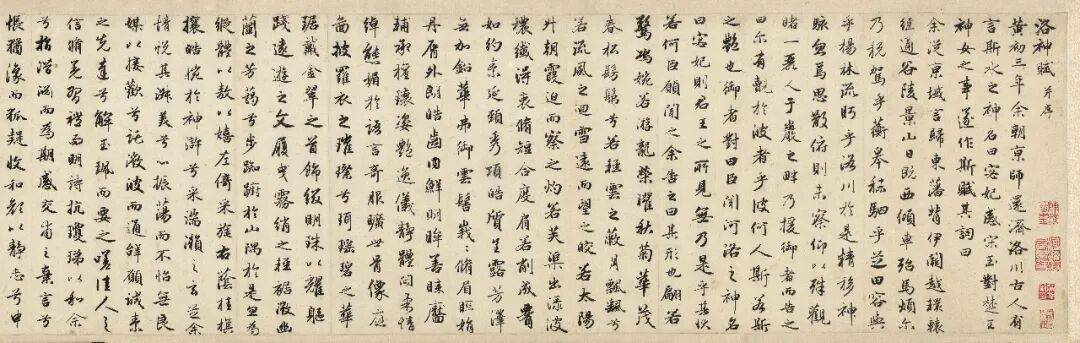 洛神賦 并序
黃初三年余朝京師還濟洛川古人有
言斯水之神名曰宓妃感宋玉對楚王
神女之事遂作斯賦其詞曰
余從京域言歸東藩背伊闕越轘轅
經通谷陵景山日既西傾車殆馬煩尔
乃稅駕乎蘅皋秣駟乎芝田容與
乎楊林流眄乎洛川於是精移神
駭忽焉思散俯則未察仰以殊觀
睹一麗人于巖之畔乃援御者而告之
曰尔有覿於彼者乎彼何人斯若斯
之豔也御者對曰臣聞河洛之神名
曰宓妃則君王之所見無乃是乎其狀
若何臣願聞之余告之曰其形也翩若
驚鴻婉若游龍榮曜秋菊華茂
春松髣髴兮若輕雲之蔽月飄飄兮
若流風之迴雪遠而望之皎若太陽
升朝霞迫而察之灼若芙蕖出淥波
穠纖得衷脩短合度肩若削成腰
如約素延頸秀項皓質呈露芳澤
無加鉛華弗御雲髻峩峩脩眉聯娟
丹脣外朗皓齒内鮮明眸善睞靨
輔承權瓌姿豔逸儀靜體閑柔情
綽態媚於語言奇服曠世骨像應
圖披羅衣之璀璨兮珥瑤碧之華
琚戴金翠之首飾綴明珠以耀軀
踐遠遊之文履曳霧綃之輕裾微幽
蘭之芳藹兮步踟躕於山隅於是忽焉
縱體以敖以嬉左倚采旄右蔭桂旗
攘皓腕於神滸兮采湍瀨之玄芝余
情悅其淑美兮心振蕩而不怡無良
媒以接歡兮託微波而通辭願誠素
之先達兮解玉珮而要之嗟佳人之
信脩羌習禮而明詩抗瓊珶以和余
兮指潛淵而為期感交甫之棄言兮
悵猶豫而狐疑收和顏以靜志兮申